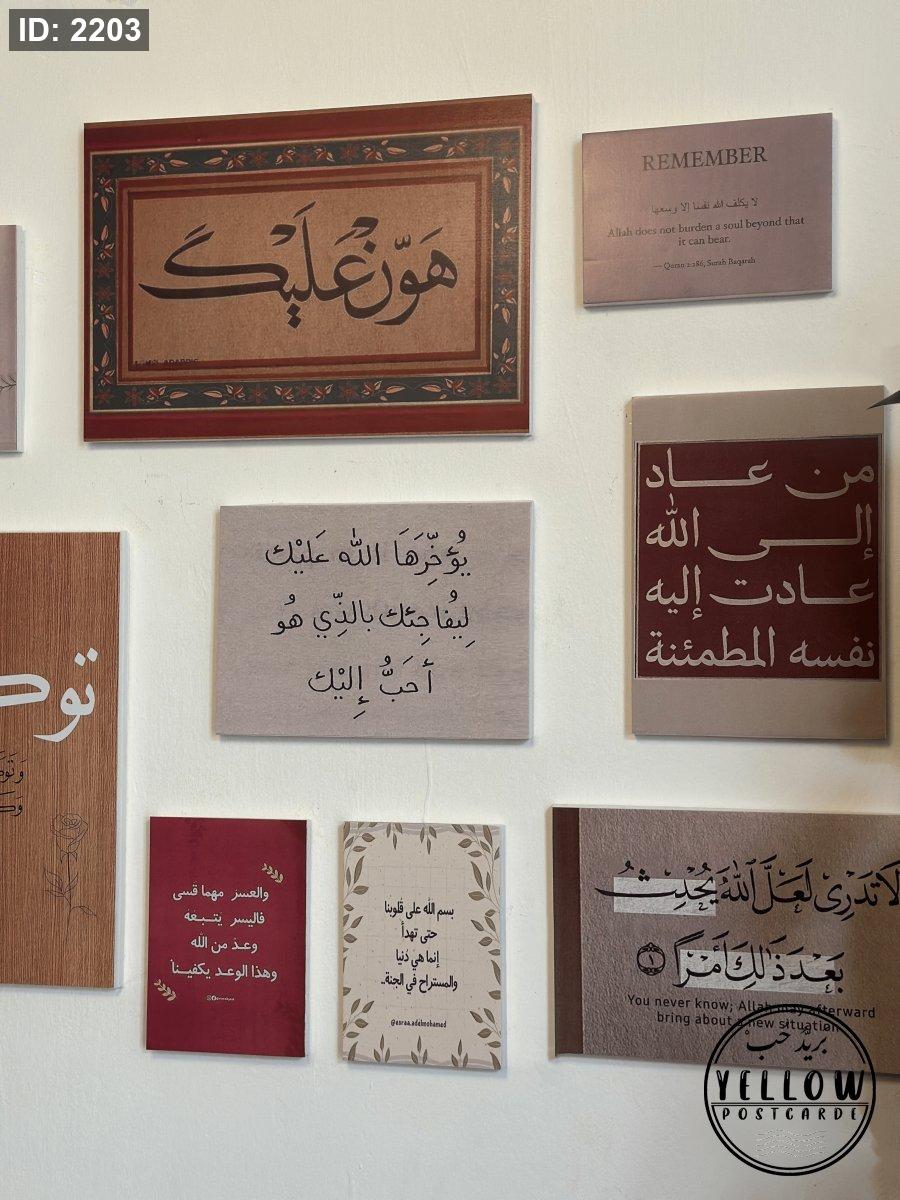 ID: 2203
هَوِّنْ عَلَيْكَ
REMEMBER
لا يكلف الله نفسا إلا وسعها
Allah does not burden a soul beyond that
it can bear.
— Quran 2:286, Surah Baqarah
من عاد
إلى الله
عادت إليه
نفسه المطمئنة
يُؤخِّرَهَا اللّه عَليْك
لِيُفاجِئك بالذِّي هُو
أحَبُّ إِليْك
توك
والعسر مهما قسى
فاليسر يتبعه
وعد من الله
وهذا الوعد يكفينا
بسم الله على قلوبنا
حتى تهدأ
إنما هي دُنيا
والمستراح في الجنة..
@esraa.adelmohamed
لَا تَدْرِى لَعَلَّ ٱللَّهَ يُحْدِثُ
بَعْدَ ذَٰلِكَ أَمْرًا ١
You never know; Allah may afterward
bring about a new situation
بريد حب
YELLOW
POSTCARDE